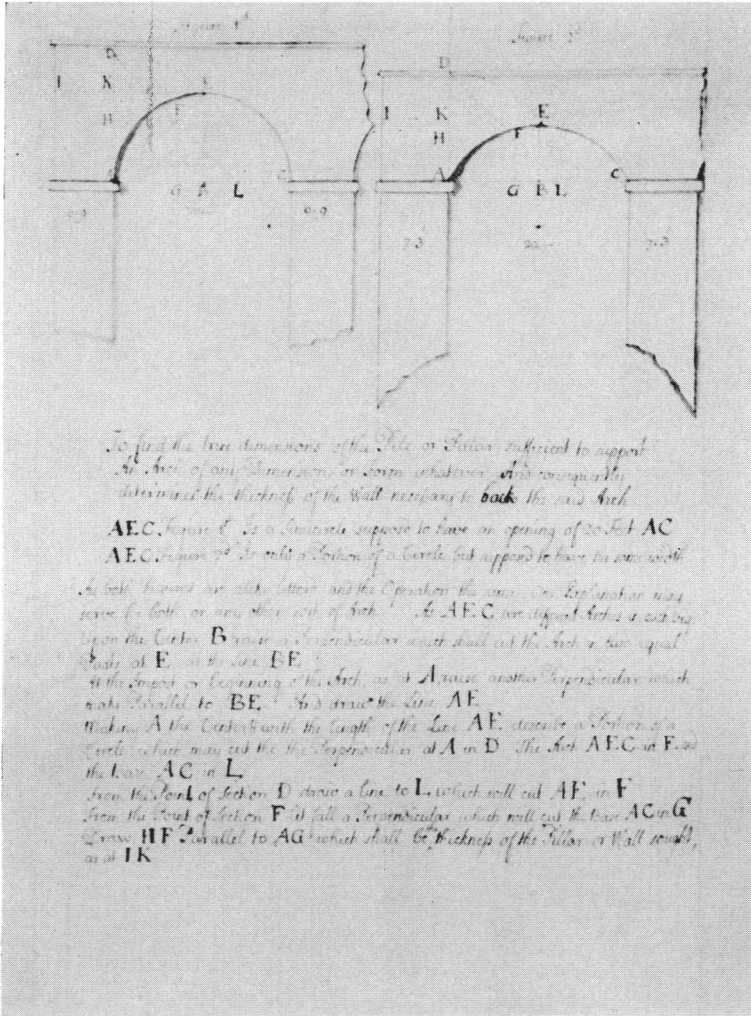 Figure 1st
Figure 2d
D
D
I K
E
I K
E
H
F
H
F
A
C
G B L
C
G B L
6-9
6-9
7-3
20
7-3
To find the true dimensions of the Pile or Pillar sufficient to support
An Arch of any Dimensions or form whatever And consequently
determines the thickness of the Wall necessary to back the said Arch
AEC Figure 1st Is a Semicircle suppos'd to have an opening of 20 Feet AC
AEC Figure 2d Is only a Portion of a Circle but suppos'd to have the same width
As both Figures are alike letterd and the Operation the same One Explanation may
serve for both or any other sort of Arch As AEC are different Arches
upon the Center B raise a Perpendicular which shall cut the Arch in two equal
Parts at E as the Line BE
At the Impost or beginning of the Arch as at A raise another Perpendicular which
make Parallel to BE And draw the Line AE
Making A the Center & with the length of the Line AE describe a Portion of a
Circle which may cut the the Perpendicular at A in D The Arch AEC in E and
the base AC in L
From the Point of Section D draw a line to L which will cut AE in F
From the Point of Section F let fall a Perpendicular which will cut the Base AC in G
Draw HF Parallel to AG which shall be the thickness of the Pillar or Wall sought,
as at IK